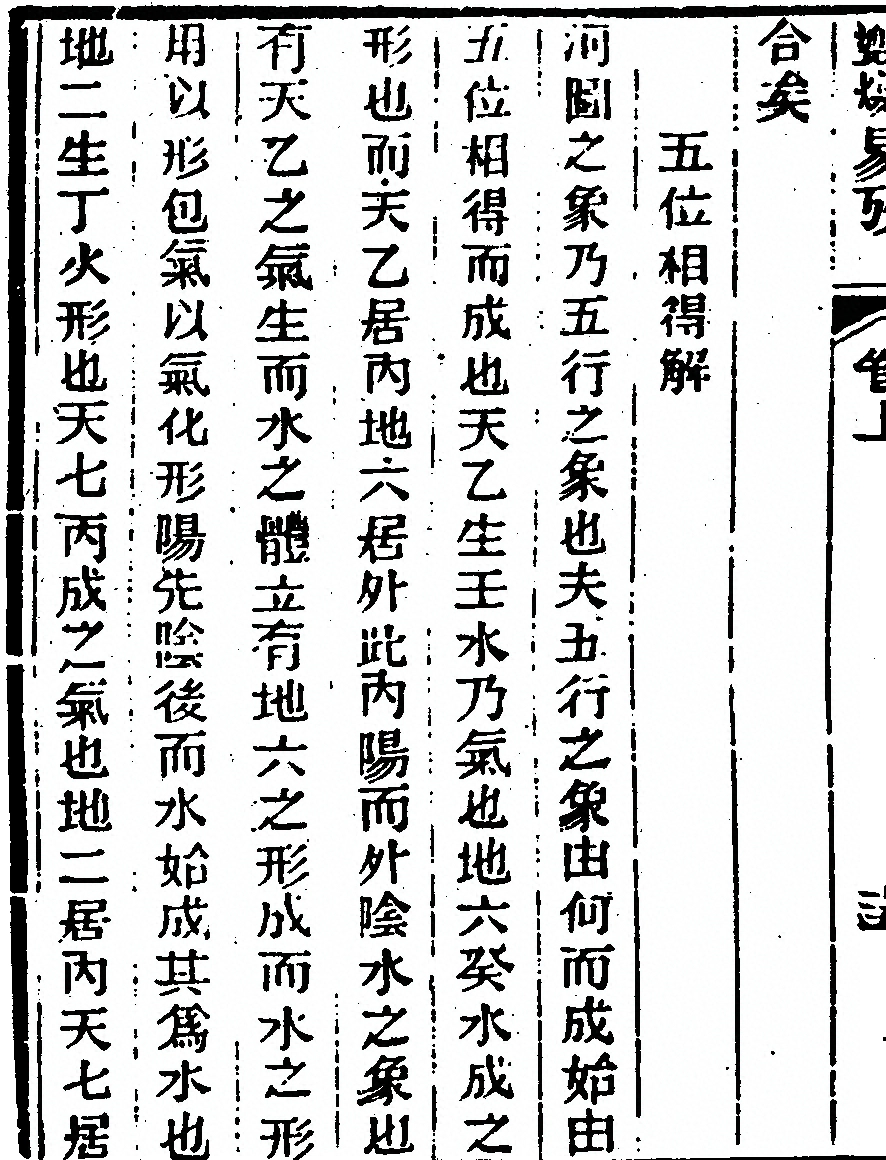 易
合矣
五位相得解
河圖之象乃五行之象也夫五行之象由何而成始由
五位相得而成也天乙生壬水乃氣也地六癸水成之
形也而天乙居內地六居外此內陽而外陰水之象也
有天乙之氣生而水之體立有地六之形成而水之形
用以形包氣以氣化形陽先陰後而水始成其爲水也
地二生丁火形也天七丙成之氣也地二居內天七居